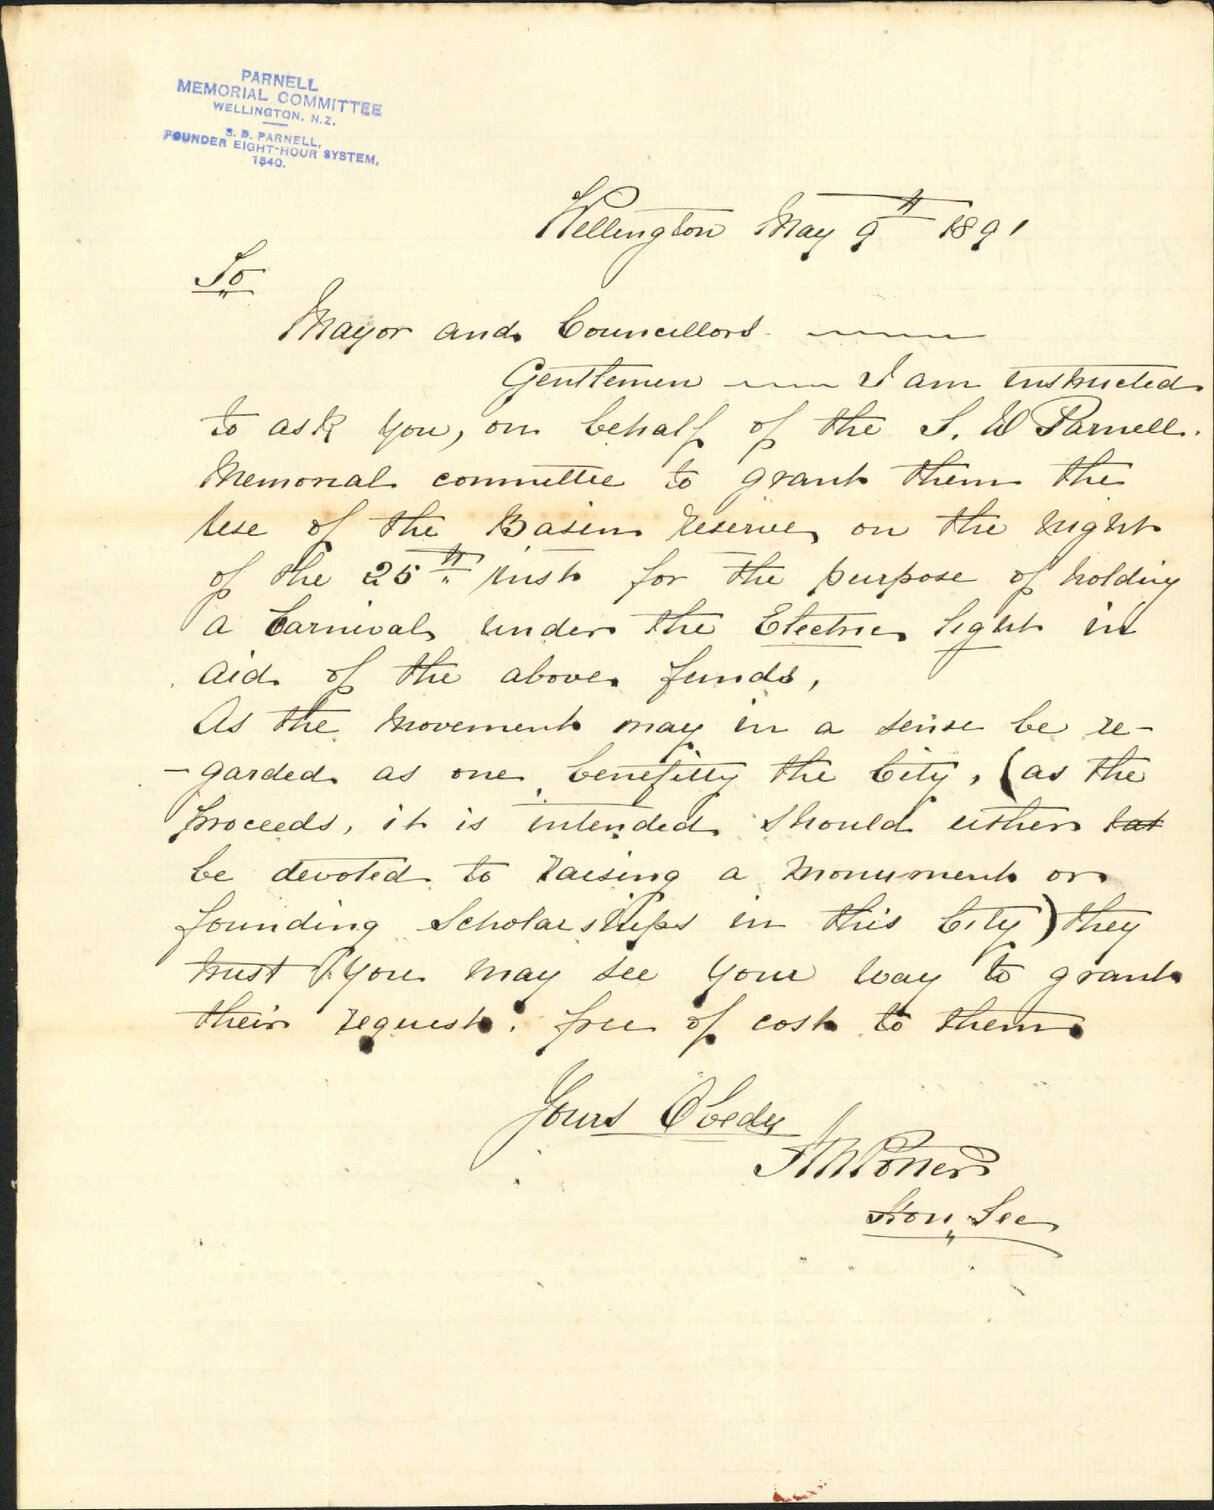 PARNELL
MEMORIAL COMMITTEE
WELLINGTON, N.Z.
S. D. PARNELL,
FOUNDER EIGHT-HOUR SYSTEM,
1840.
Wellington May 9th 1891
To
Mayor and Councillors
Gentlemen I am instructed
to ask you, on behalf of the S. W Parnell.
Memorial committee to grant them the
use of the Basin reserve, on the night
of the 25th inst for the purpose of holding
a Carnival under the Electric light in
aid of the above funds,
As the movement may in a sense be re-
-garded as one benefitty the City, (as the
proceeds, it is intended should either
be devoted to raising a monument or
founding Scholarships in this City) they
trust you may see your way to grant
their request. free of cost to them
Yours Obedy
Hon. Sec